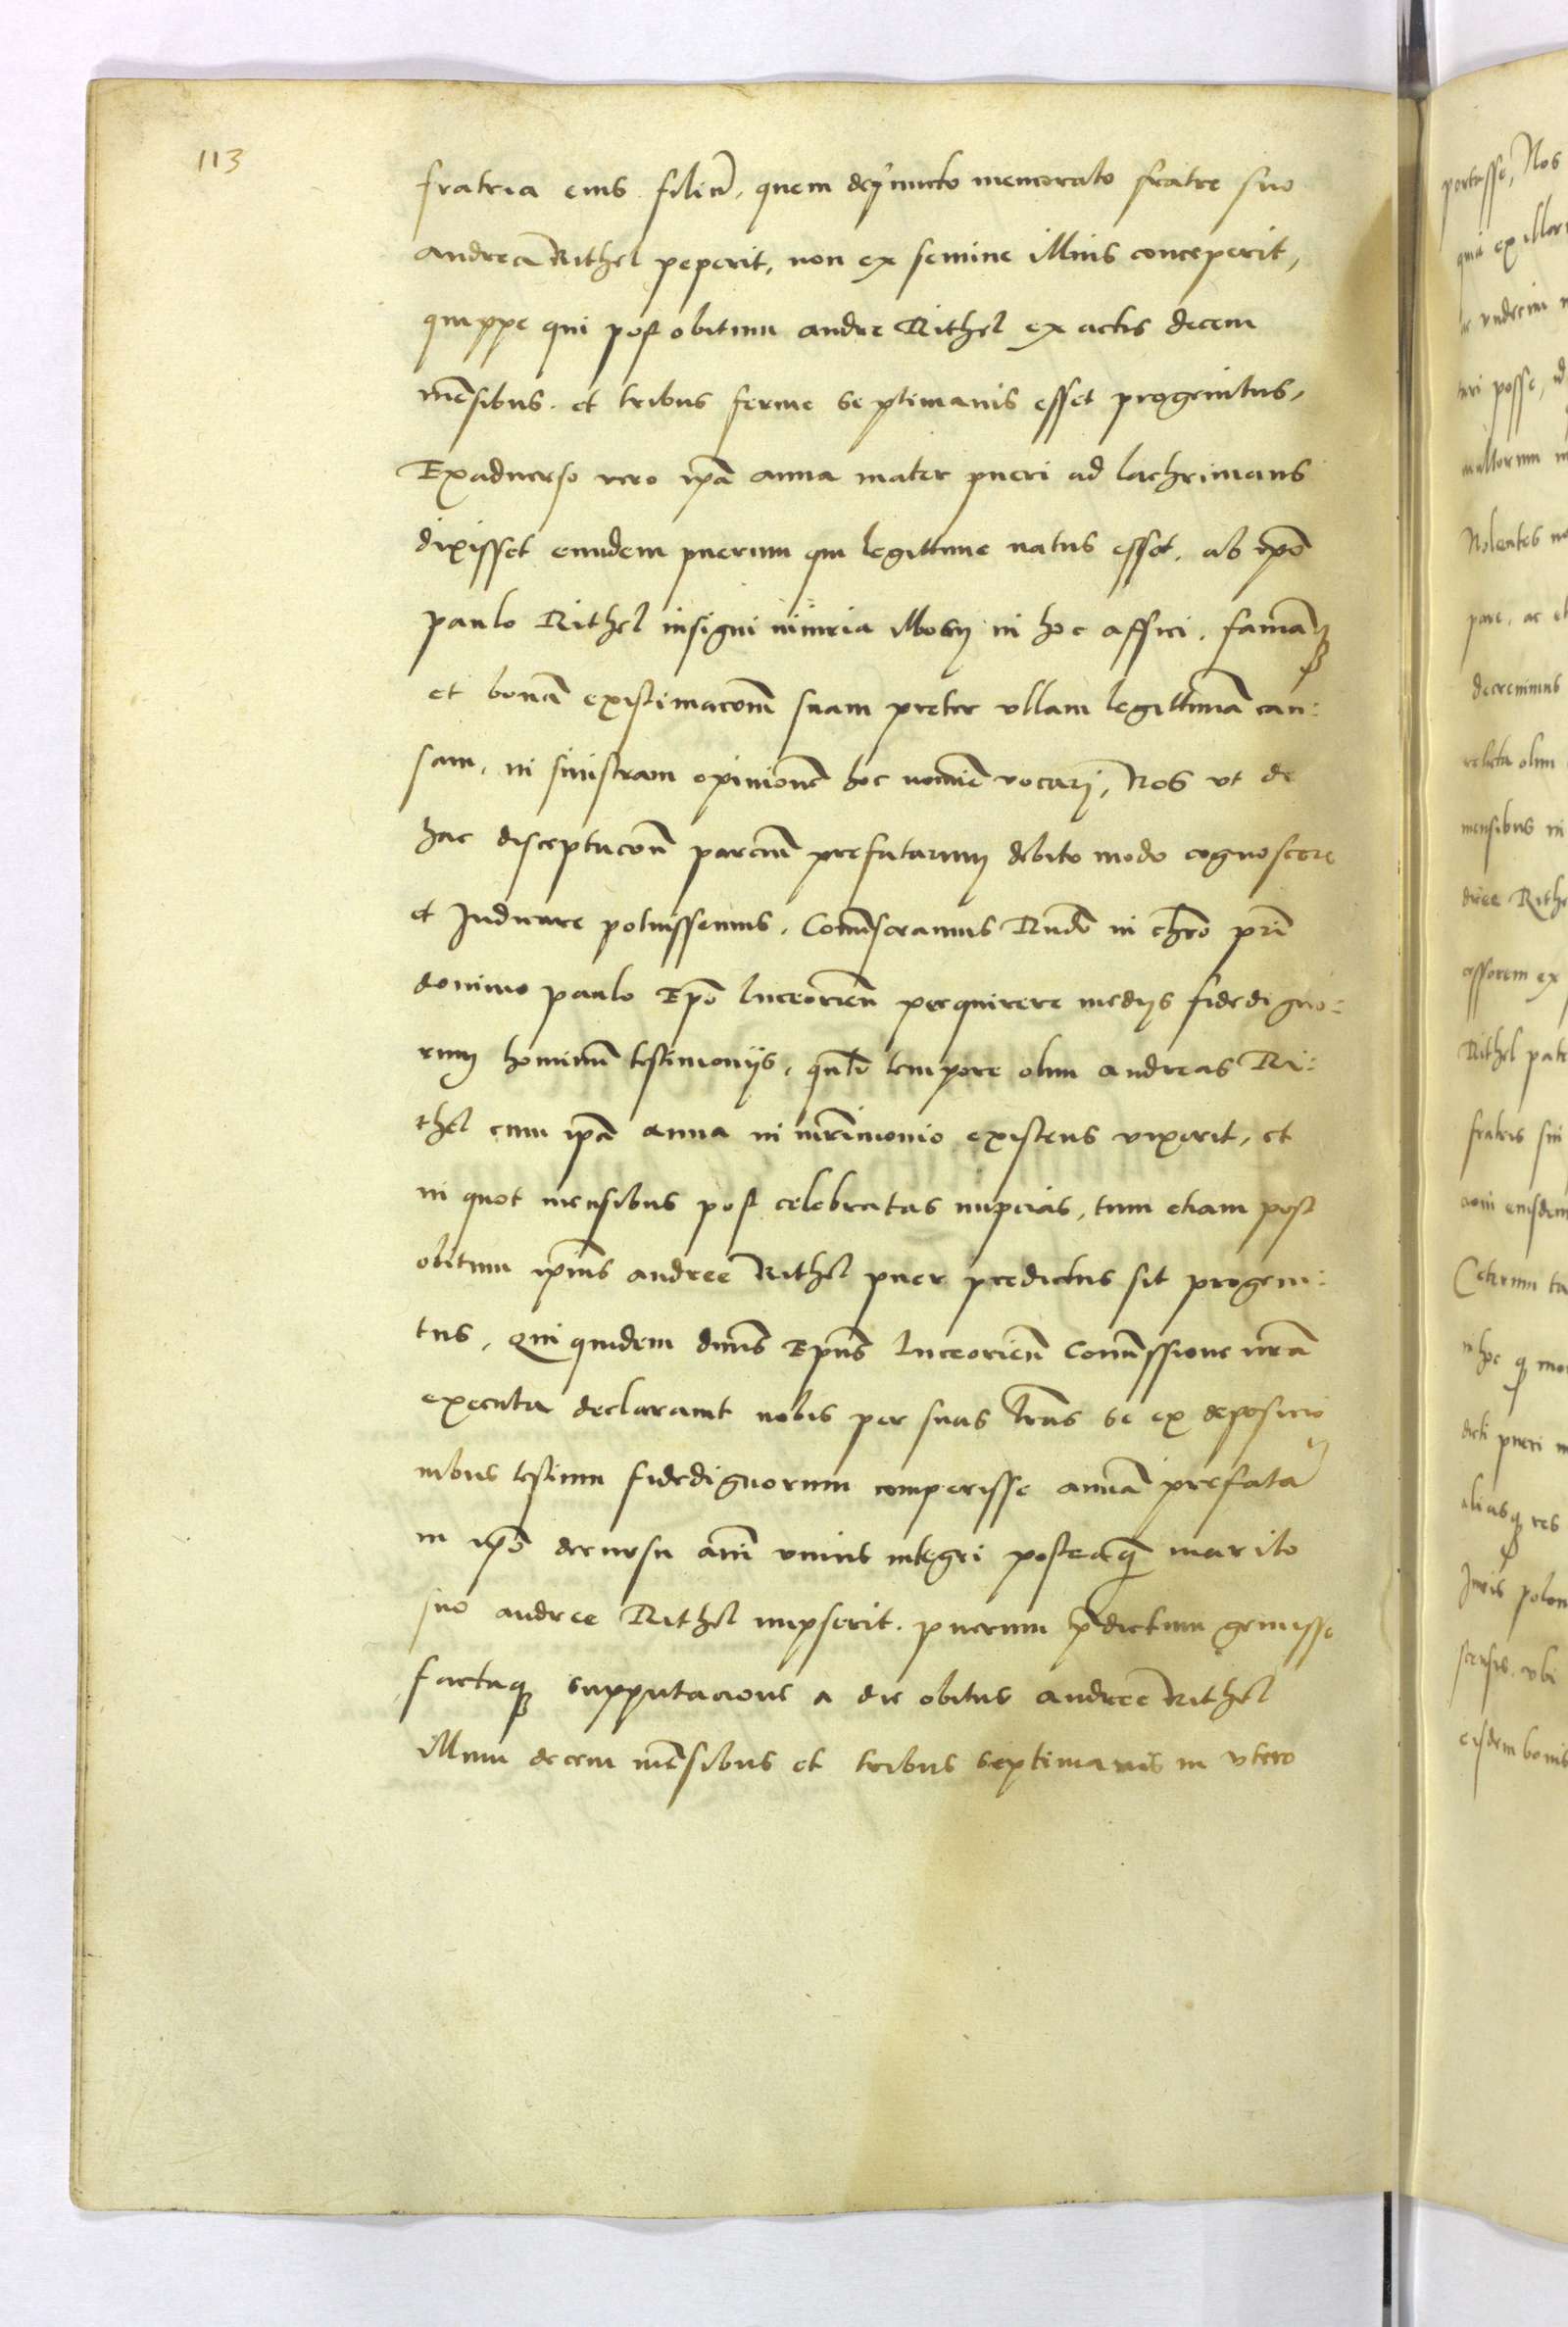 113
fratria eius filiũ, quem defuncto memorato fratre suo
andrea Rithel peperit, non ex semine illius conceperit,
quippe qui post obitum andre Rithel ex actis decem
mẽsibus et tribus ferme septimanis esset progenitus,
Exaduerso vero ip̃a anna mater pueri ad lachrimans
dixisset eundem puerum qui legittime natus esset, ab ip̃o
paulo Rithel insigni iniuria in hoc affici, famãqꝫ
et bonã existimacõm suam preter vllam legittimã cau:
sam, in sinistram opinionẽ hoc nomiẽ vocari, Nos vt de
hac disceptacõn parcium prefatarum debito modo cognoscere
et Iudicare potuissemus, Com̃iseramus Rñdo in chr̃o pr̃i
domino paulo Ep̃o luceorieñ perquirere medijs fidedigno:
rum hominũ testimonijs, tempore olim andreas Ri:
thel cum ip̃a anna in mr̃imonio existens vixerit, et
in quot mensibus post celebratas nupcias, tum etiam post
obitum ip̃ius andree Rithel puer predictus sit progeni:
tus, Qui quidem dñus Ep̃us luceorieñ Com̃issione nr̃a
executa declarauit nobis per suas lr̃as se ex deposicio
nibus testium fidedignorum comperisse annã prefatã
in ip̃o decursu anni vnius integri posteaq̃ marito
suo andree Rithel nupserit, puerum p̃dictum genuisse
factaqꝫ supputacione a die obitus andree Rithel
illum decem mẽsibus et tribus septimanis in vtero
portasse, Nos
quia ex illor
vndecim
teri posse, id
multorum
Nolentes
pare, ac
decreuimus
relicta olim
mensibus in
dree Rithe
essorem ex
Rithel pat
fratris sui
eiusdem
Ceterum
in hoc q
dicti pueri
aliasqꝫ res
Iuris polon
scensis, vbi
eisdem bonis